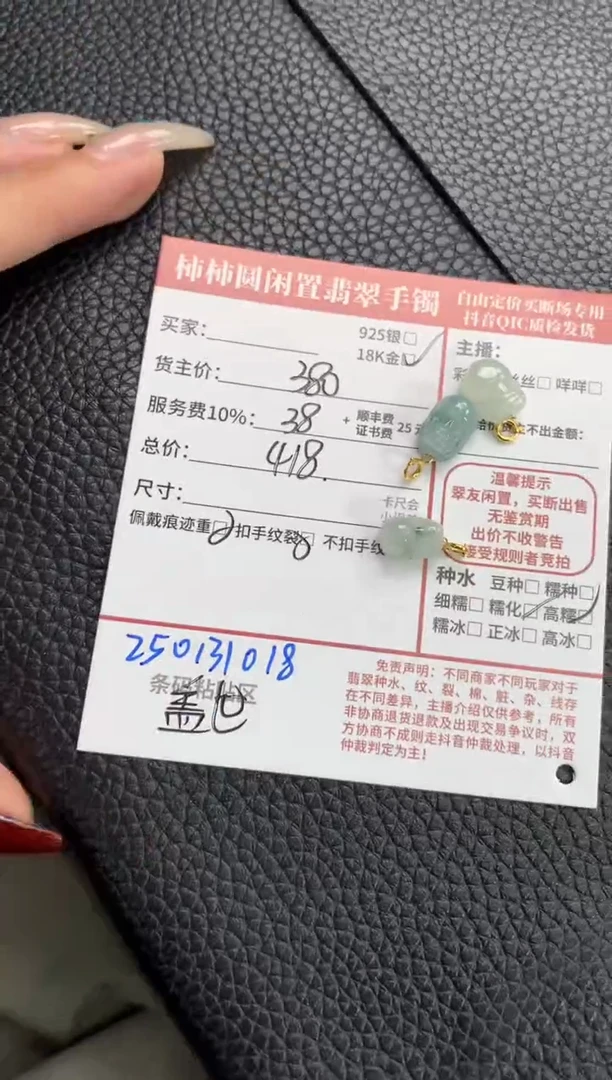 柿柿圆闲置翡翠手镯
自由定价买断场专用
抖音QIC质检发货
买家：
925银□
18K金□
货主价：380
服务费10%：38
+ 顺丰费
证书费 25元
总价：418.
尺寸：
卡尺会
佩戴痕迹重□ 扣手纹裂□ 不扣手纹
主播：
丝□ 咩咩□
不出金额：
温馨提示
翠友闲置，买断出售
无鉴赏期
出价不收警告
接受规则者竞拍
种水 豆种□ 糯种□
细糯□ 糯化□ 高糯□
糯冰□ 正冰□ 高冰□
250131018
条码粘贴区
盖世
免责声明：不同商家不同玩家对于
翡翠种水、纹、裂、棉、脏、杂、线存
在不同差异，主播介绍仅供参考，所有
非协商退货退款及出现交易争议时，双
方协商不成则走抖音仲裁处理，以抖音
仲裁判定为主！